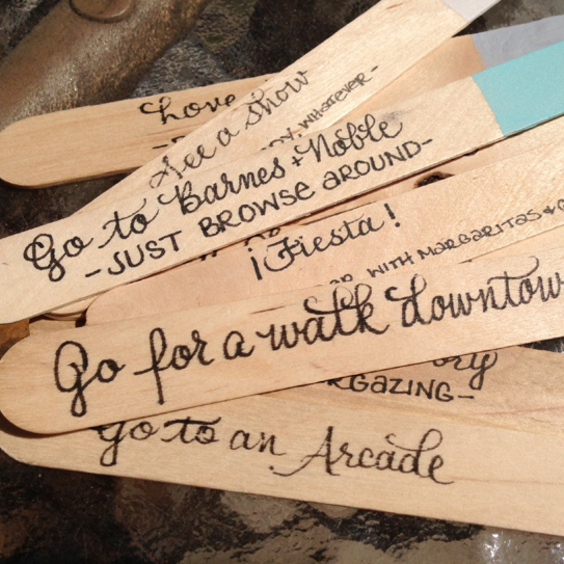 Love
See a show
, WHATEVER-
Go to Barnes + Noble
-JUST BROWSE AROUND-
¡Fiesta!
WITH MARGARITAS &
Go for a walk downtow
ory
RGAZING-
Go to an Arcade